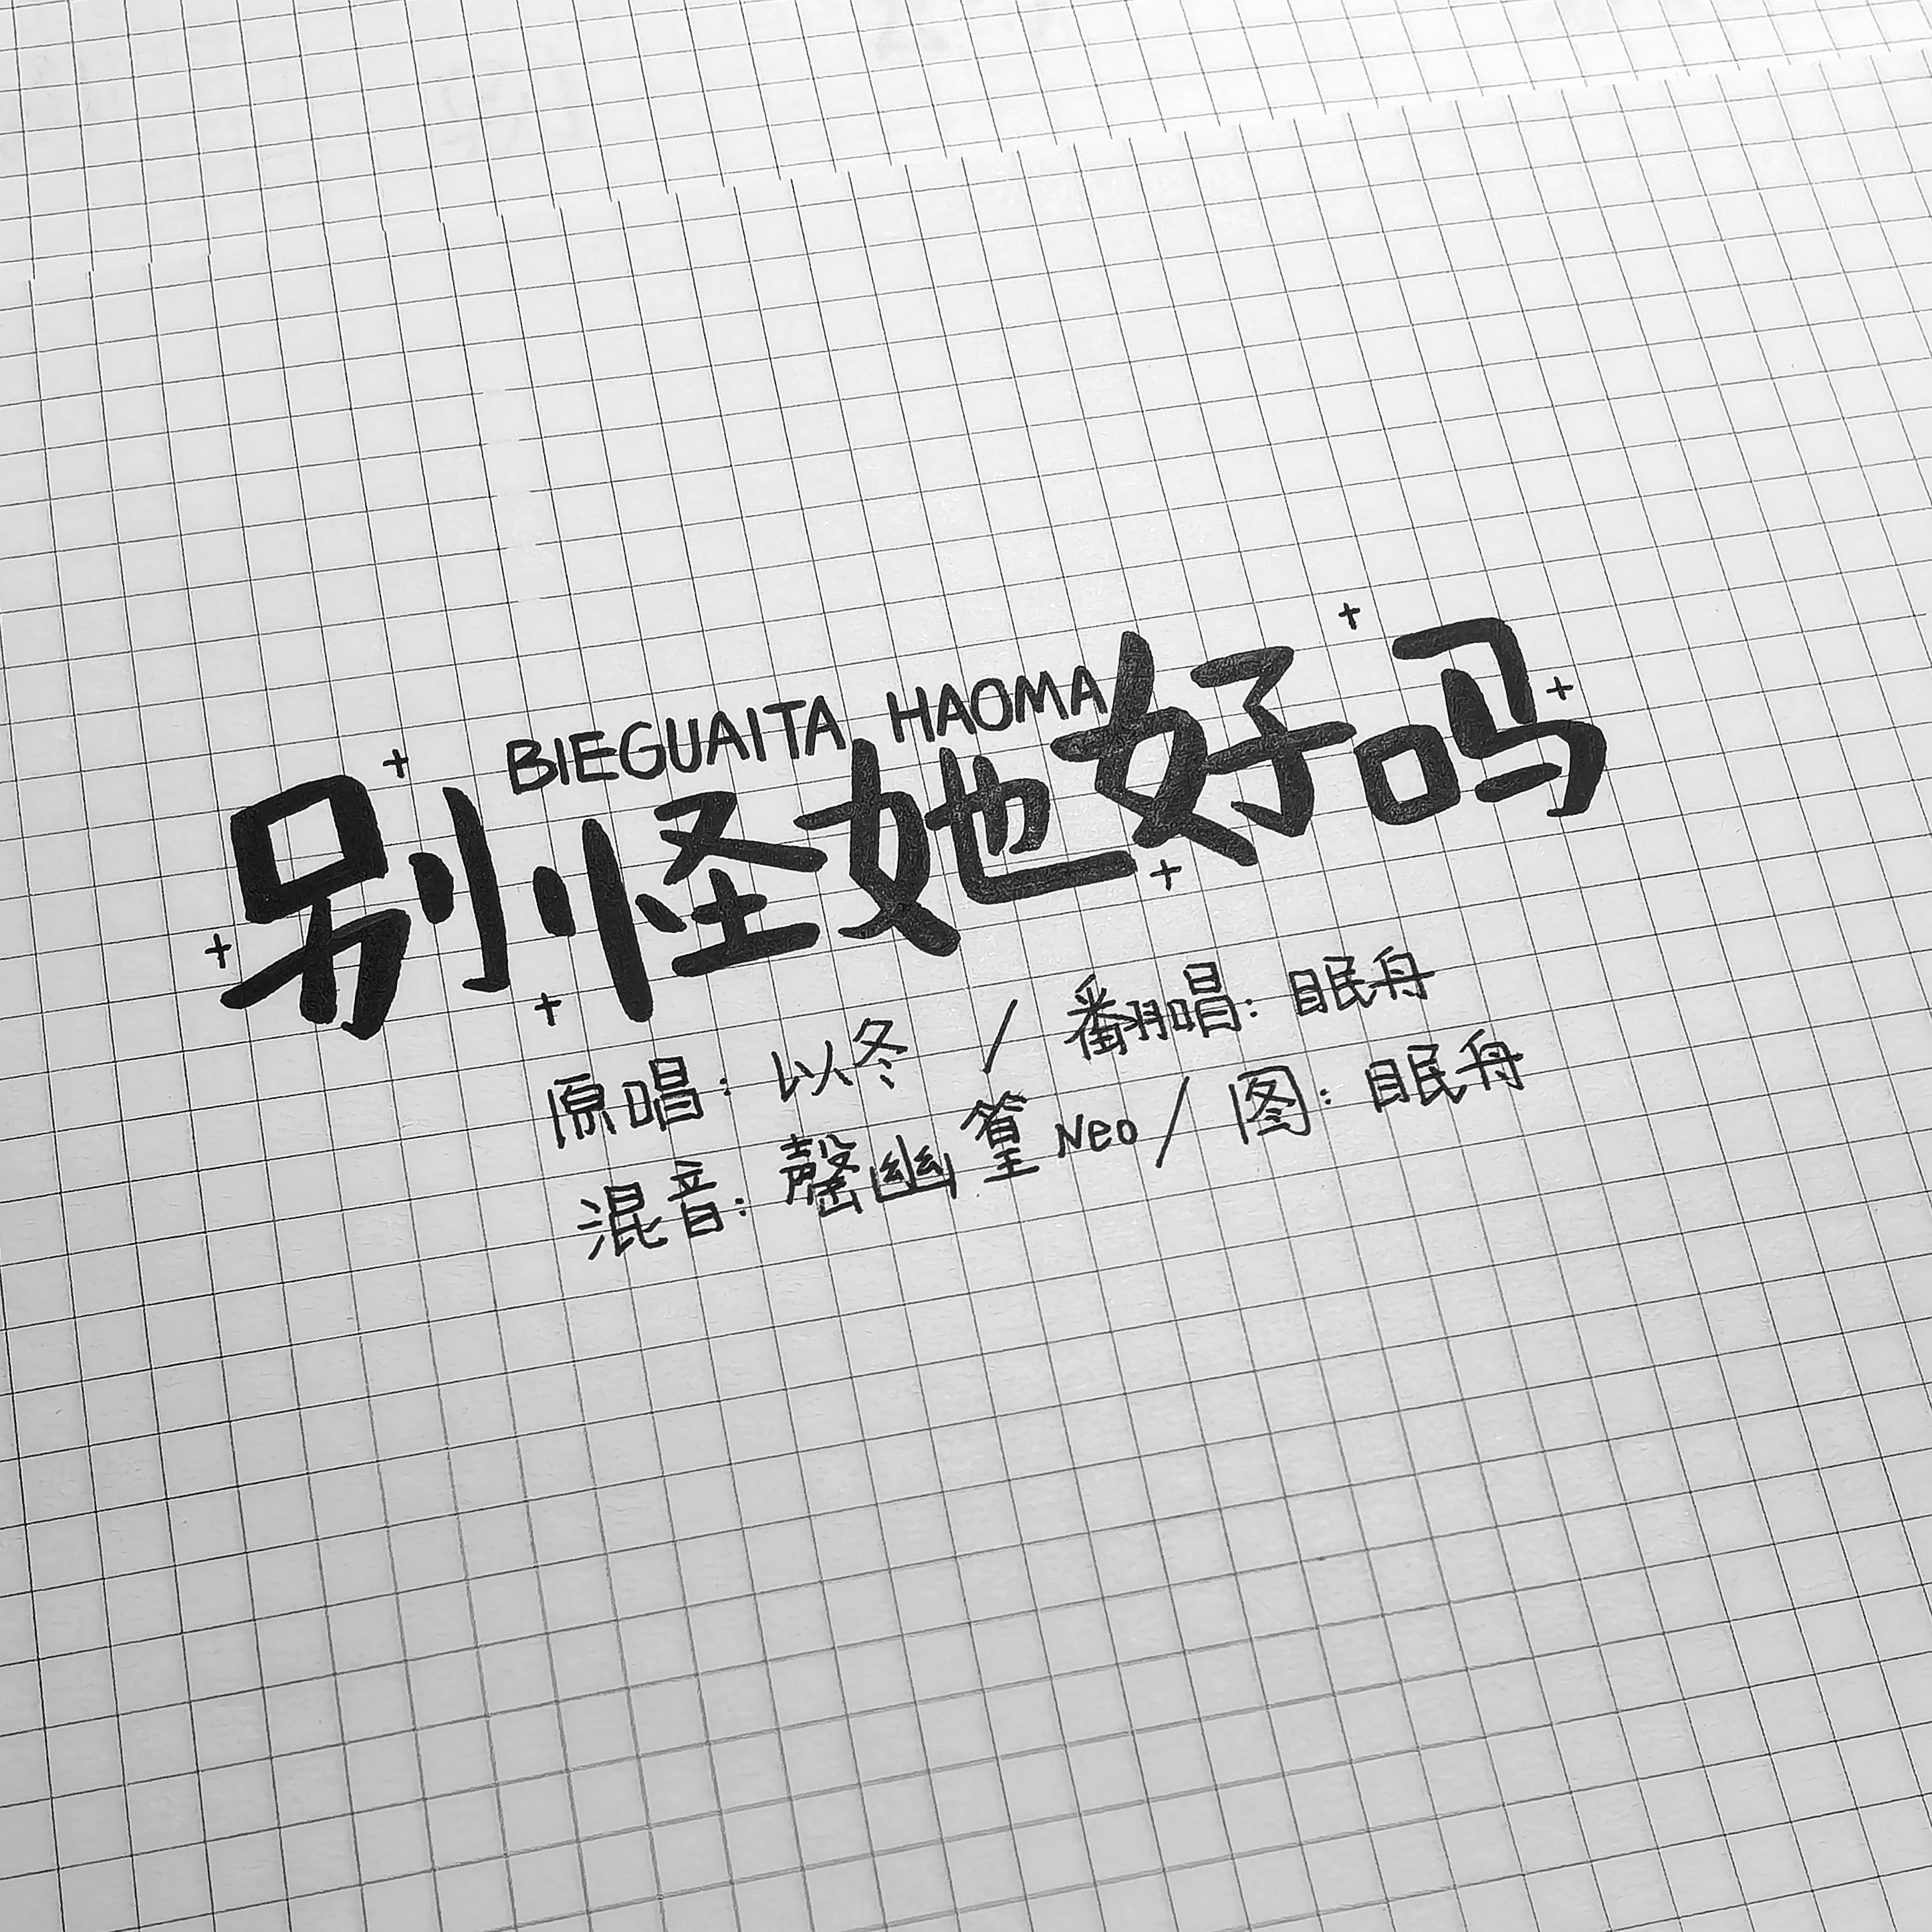 BIEGUAITA HAOMA
别怪她好吗
原唱：以冬 / 翻唱：眠舟
混音：罄幽篁Neo / 图：眠舟